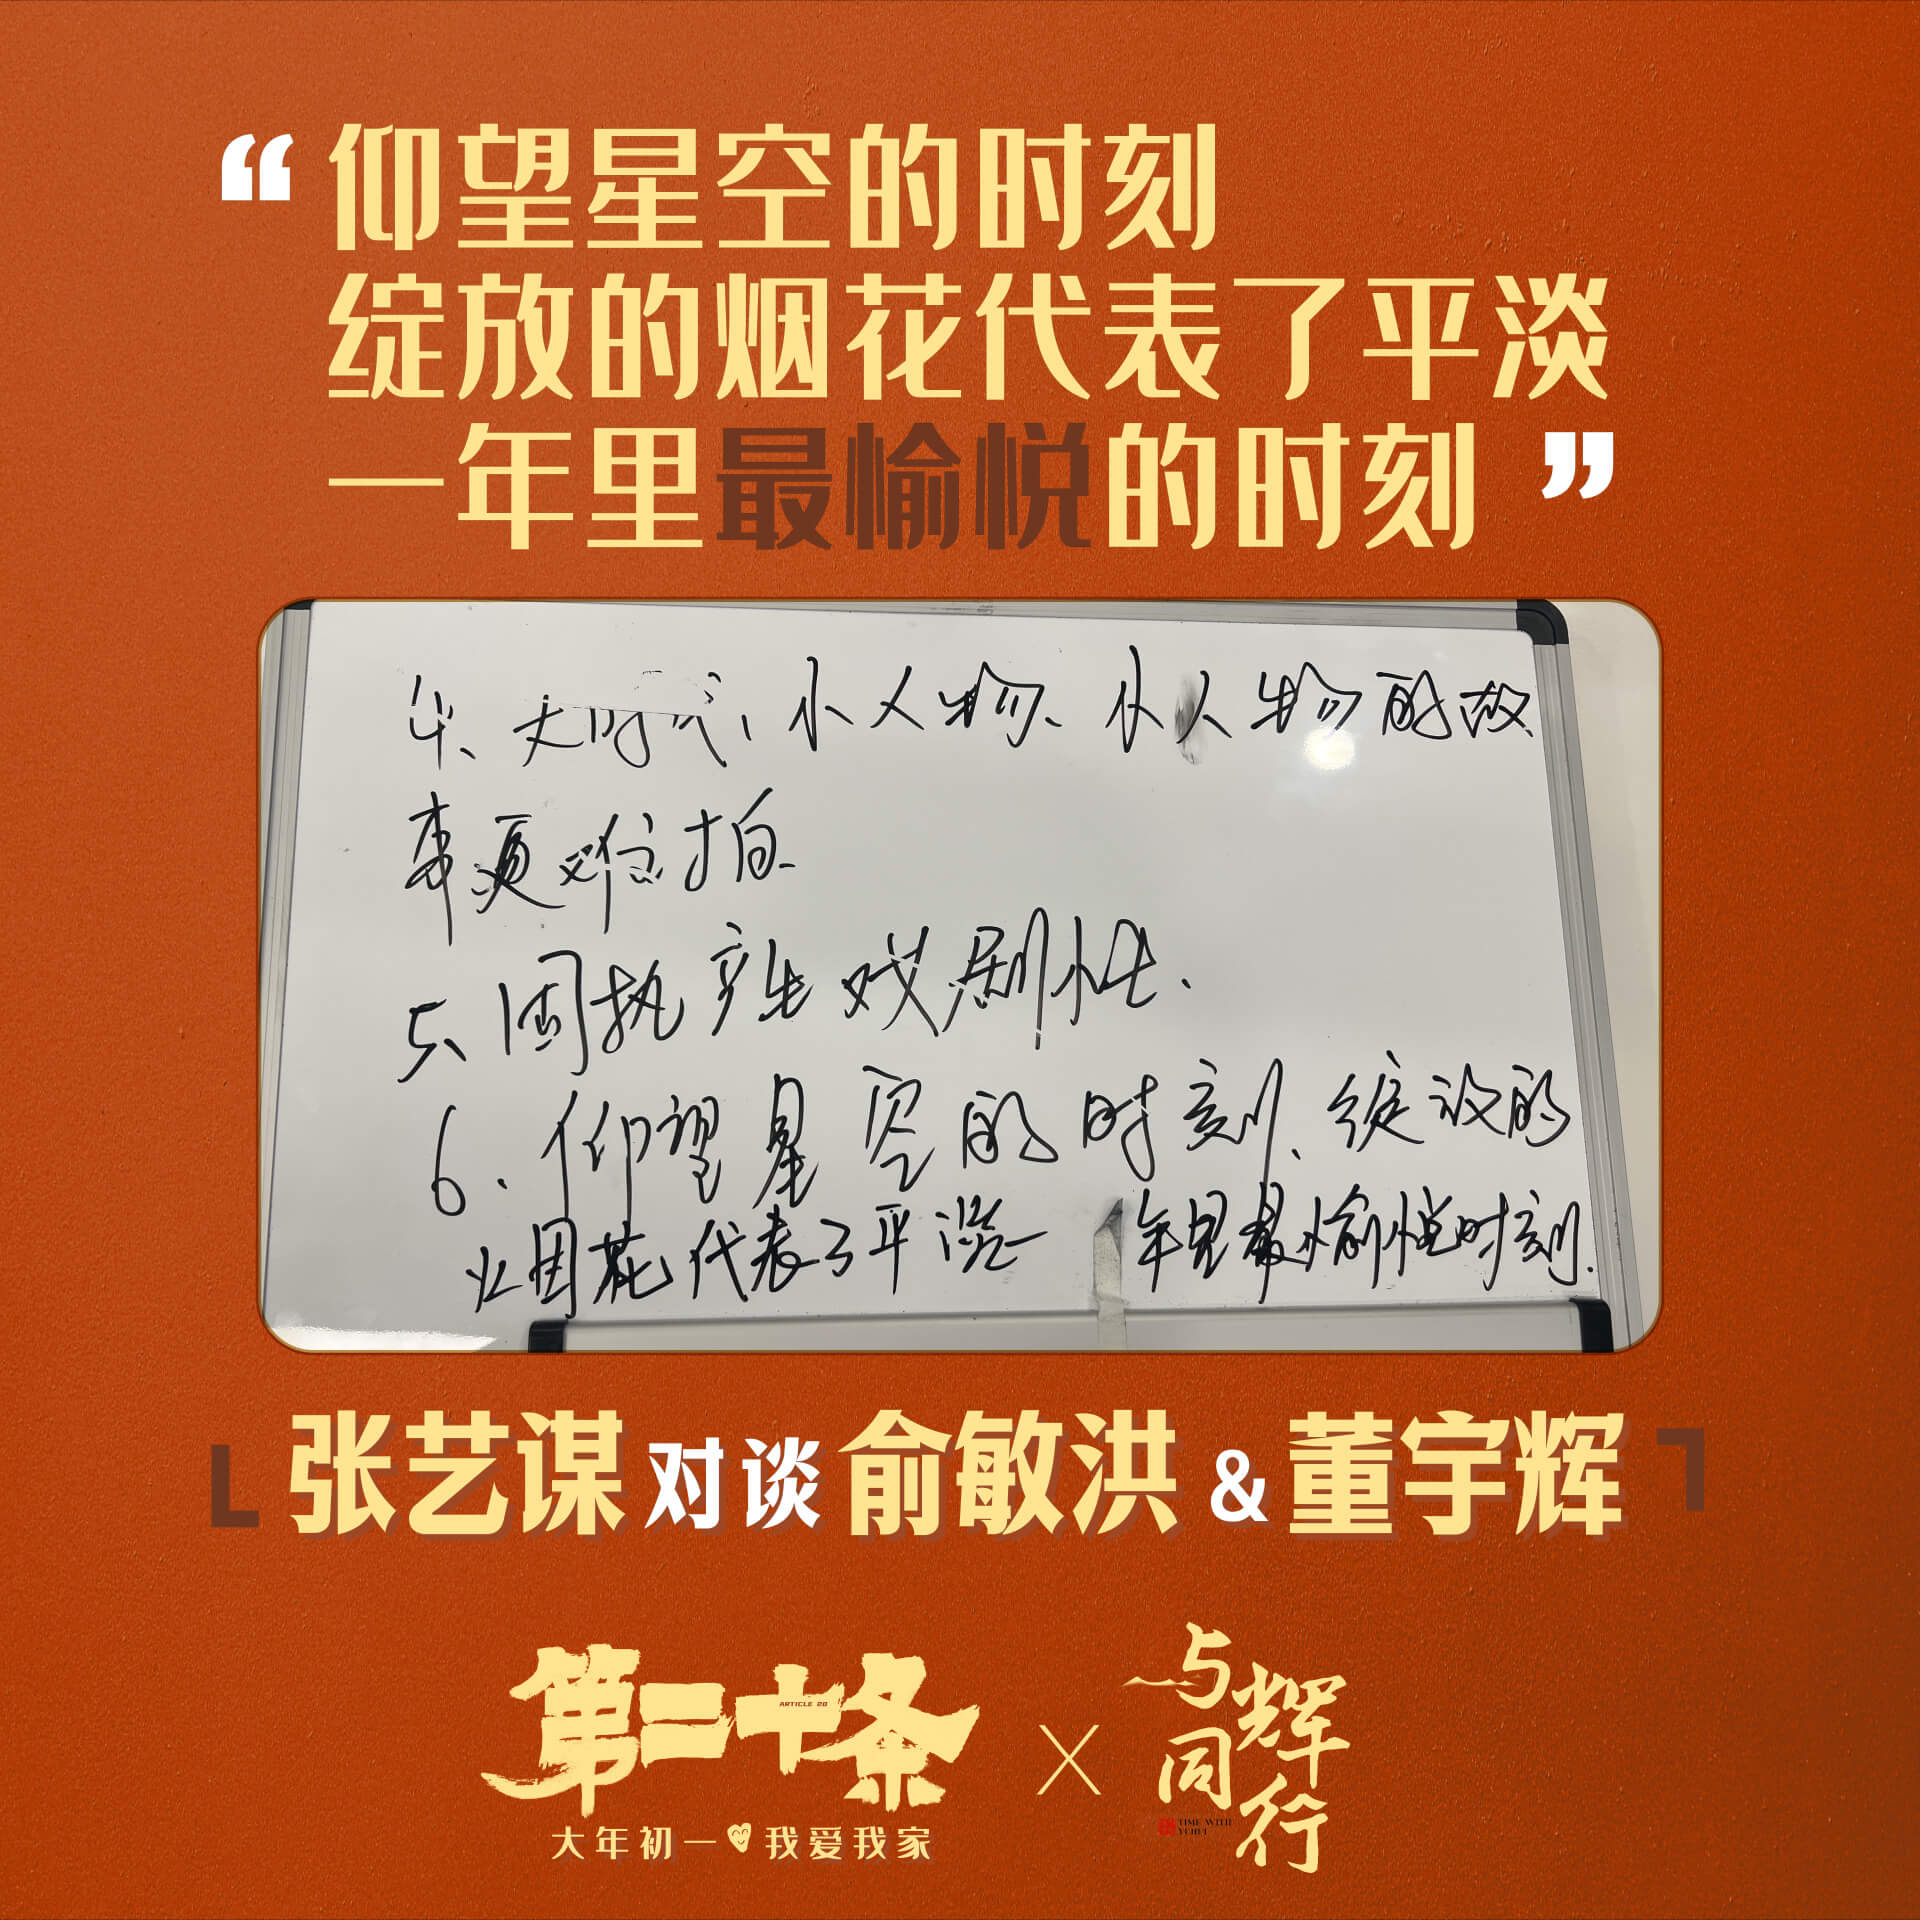 “仰望星空的时刻
绽放的烟花代表了平淡
一年里最愉悦的时刻”
4、大时代、小人物、小人物的故
事更难拍.
5、固执产生戏剧性.
6.仰望星空的时刻、绽放的
烟花代表了平淡一年里最愉悦时刻.
张艺谋对谈俞敏洪&董宇辉
第二十条
ARTICLE 20
大年初一我爱我家
×
与辉同行
TIME WITH
YUHUI